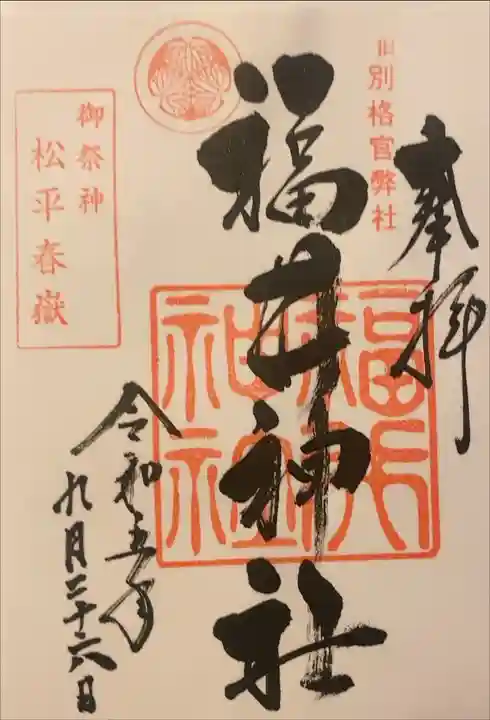 奉拝
旧別格官弊社
福井神社
福井神社
御祭神
松平春嶽
令和五年
九月二十六日